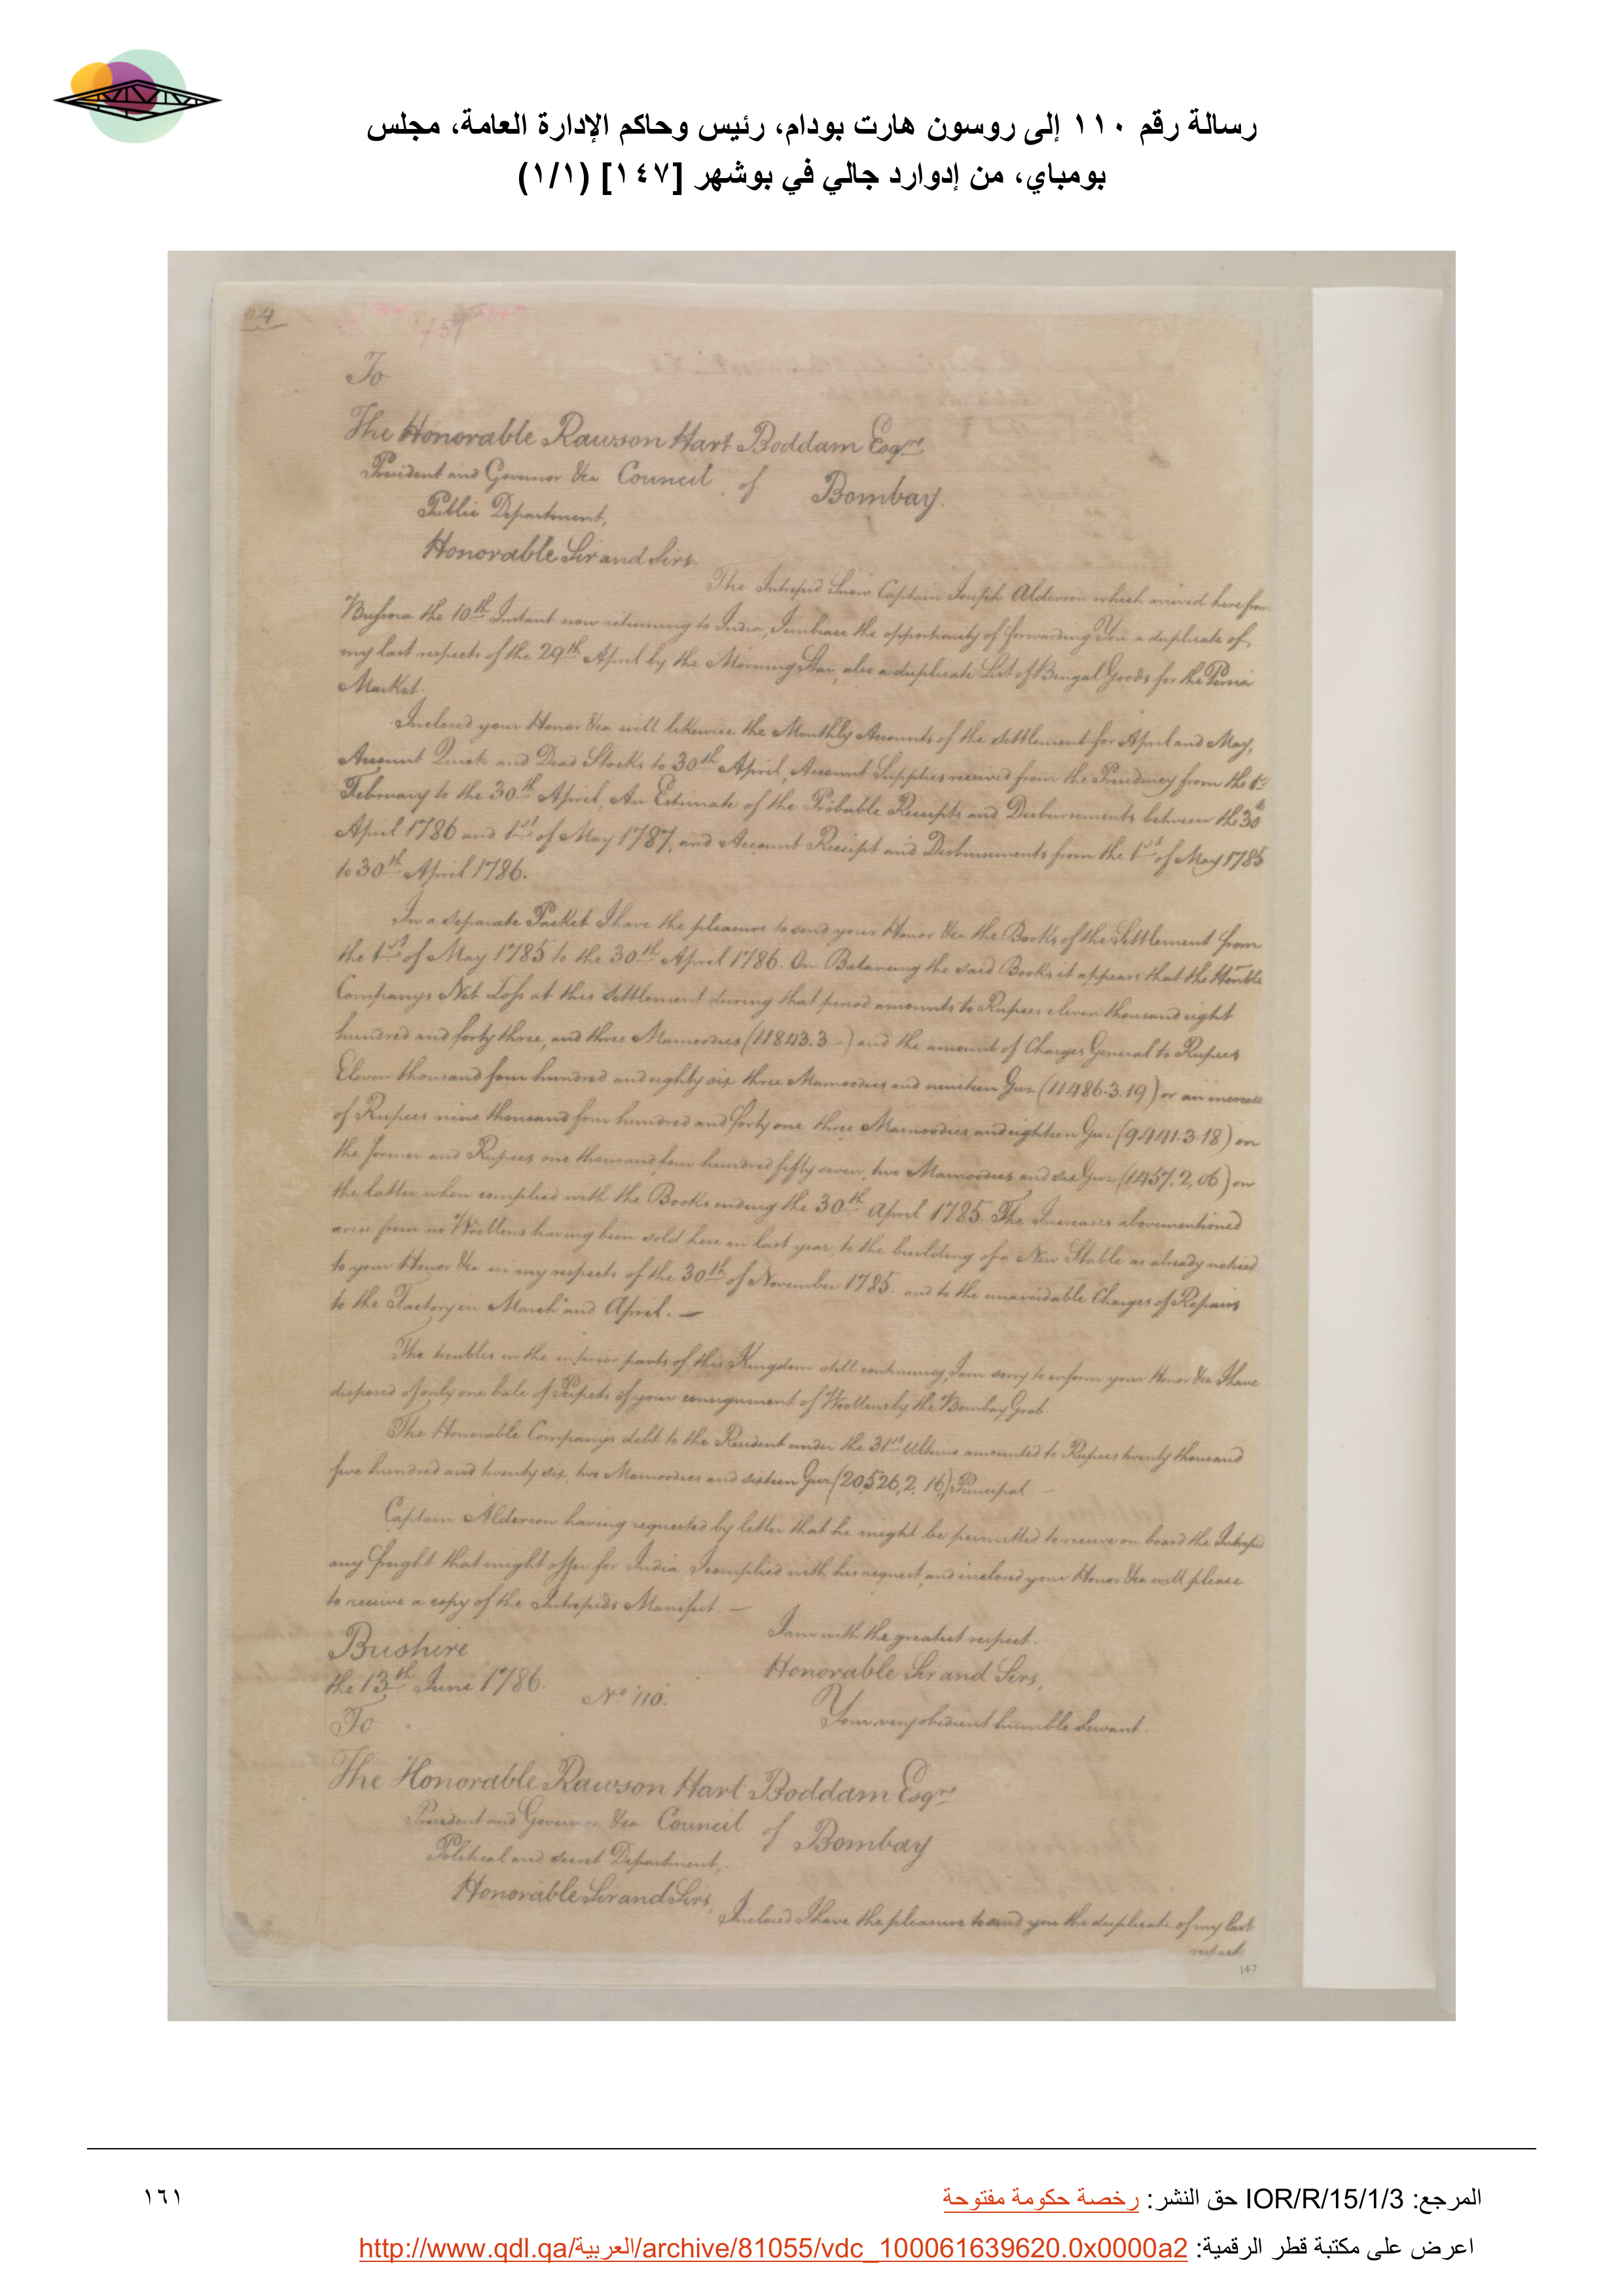 رسالة رقم ١١٠ إلى روسون هارت بودام، رئيس وحاكم الإدارة العامة، مجلس
بومباي، من إدوارد جالي في بوشهر [١٤٧] (١/١)
To
The Honorable Rawson Hart Boddam Esqrs
President and Governor &ca Council of Bombay.
Public Department,
Honorable Sir and Sirs
The Intrepid Snow Captain Joseph Alderson which arrived here from
Bussora the 10th Instant now returning to India, I embrace the opportunity of forwarding You a duplicate of
my last respects of the 29th April by the Morning Star, also a duplicate List of Bengal Goods for the Persia
Market.
Inclosed your Honor &ca will likewise the Monthly Accounts of the Settlement for April and May,
Account Quick and Dead Stocks to 30th April, Account Supplies received from the Presidency from the 1st
February to the 30th April, An Estimate of the Probable Receipts and Disbursements between the 30th
April 1786 and 1st of May 1787, and Account Receipt and Disbursements from the 1st of May 1785
to 30th April 1786.
In a separate Packet I have the pleasure to send your Honor &ca the Books of the Settlement from
the 1st of May 1785 to the 30th April 1786. On Balancing the said Books it appears that the Honble
Companys Net Loss at this Settlement during that period amounts to Rupees eleven thousand eight
hundred and forty three, and three Mamoodies (11843.3 -) and the amount of Charges General to Rupees
Eleven thousand four hundred and eighty six three Mamoodies and nineteen Guz (11486.3.19) or an increase
of Rupees nine thousand four hundred and forty one three Mamoodies and eighteen Guz (9441.3.18) on
the former and Rupees one thousand four hundred fifty seven, two Mamoodies and six Guz (1457,2,06) on
the latter when complied with the Books ending the 30th April 1785. The Increases abovementioned
arise from no Woollens having been sold here in last year, to the building of a New Stable as already noticed
to your Honor &ca in my respects of the 30th of November 1785 and to the unavoidable Charges of Repairs
to the Factory in March and April. —
The troubles in the interior parts of this Kingdom still continuing, I am sorry to inform your Honor &ca I have
disposed of only one bale of Perpets of your consignment of Woollens by the Bombay Grab.
The Honorable Companys debt to the Resident under the 31st Ultimo amounted to Rupees twenty thousand
five hundred and twenty six, two Mamoodies and sixteen Guz (20,526,2,16,) Principal —
Captain Alderson having requested by letter that he might be permitted to receive on board the Intrepid
any freight that might offer for India I complied with his request, and inclosed your Honor &ca will please
to receive a copy of the Intrepids Manifest. —
I am with the greatest respect.
Bushire
Honorable Sir and Sirs,
the 13th June 1786.
No 110.
Your very obedient humble Servant.
To
The Honorable Rawson Hart Boddam Esqrs
President and Governor &ca Council of Bombay
Political and secret Department,
Honorable Sir and Sirs,
Inclosed I have the pleasure to send you the duplicate of my last
respects
147
المرجع: IOR/R/15/1/3 حق النشر: رخصة حكومة مفتوحة
١٦١
اعرض على مكتبة قطر الرقمية: http://www.qdl.qa/العربية/archive/81055/vdc_100061639620.0x0000a2